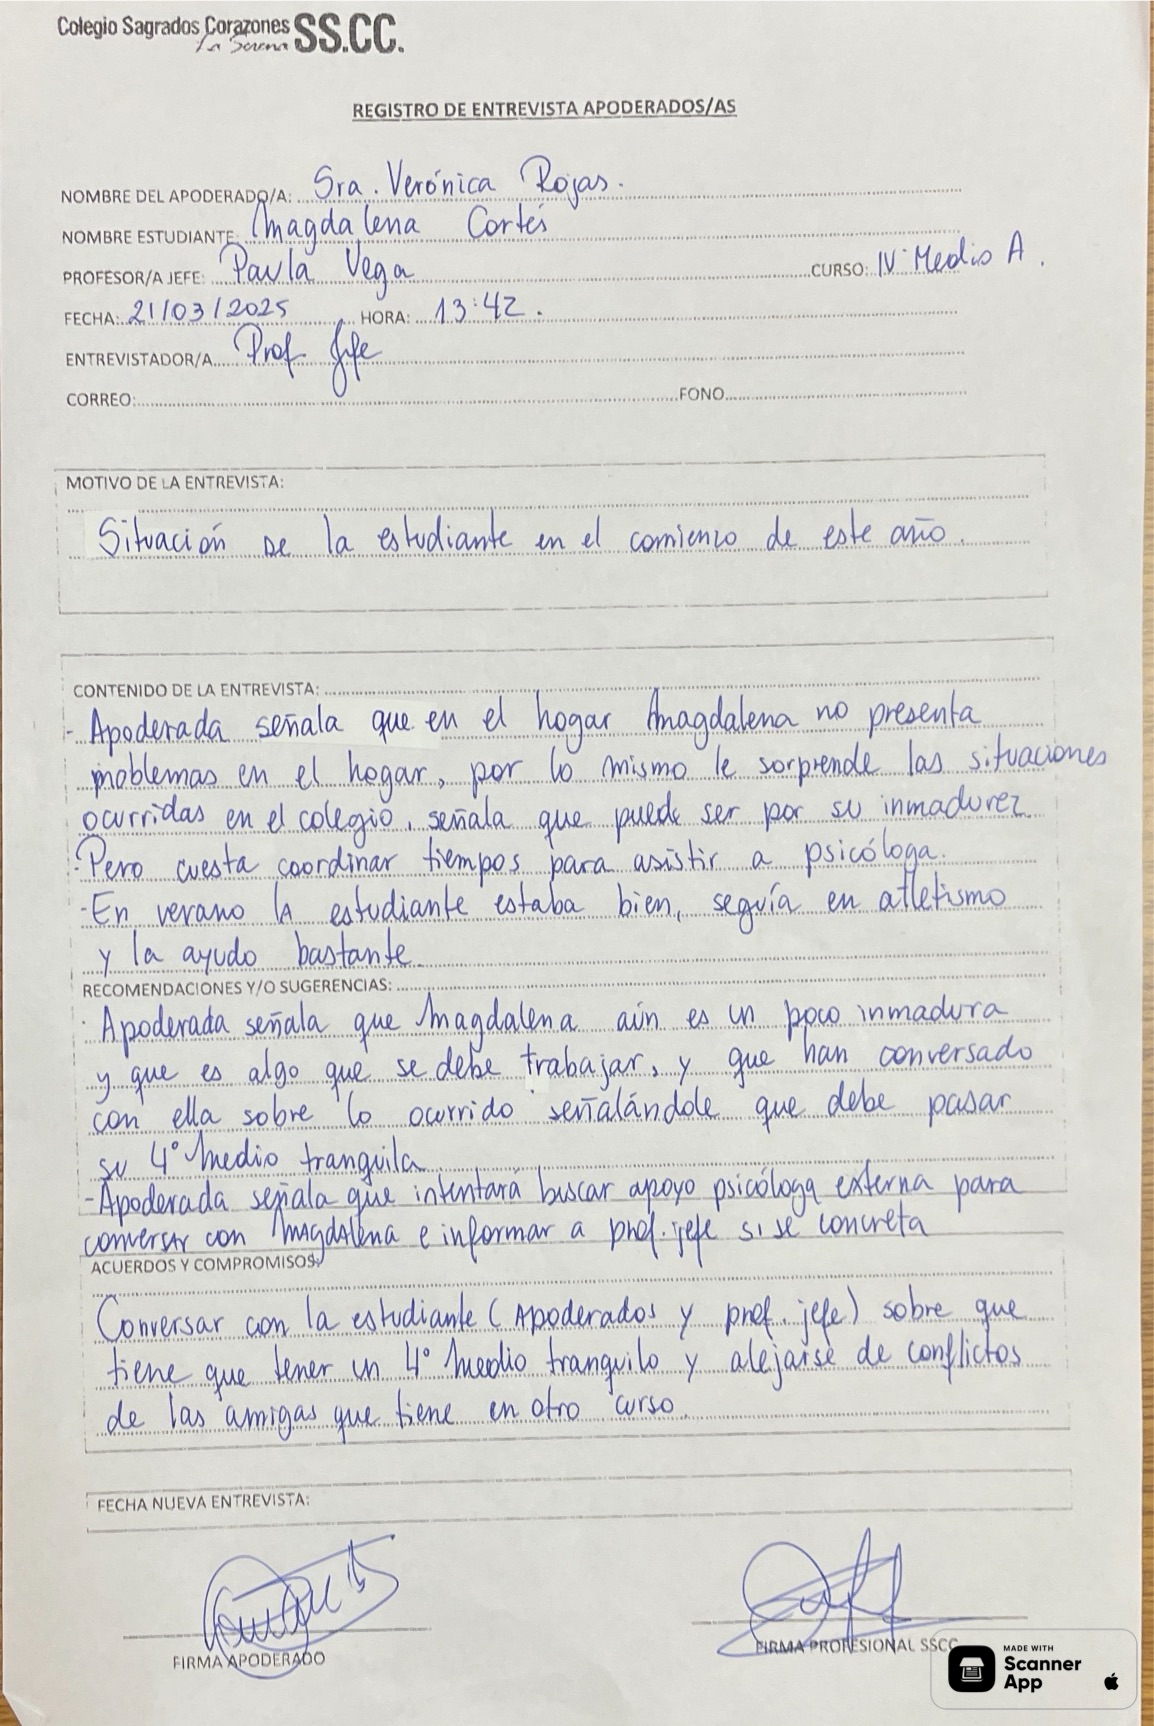 Colegio Sagrados Corazones SS.CC.
La Serena
REGISTRO DE ENTREVISTA APODERADOS/AS
NOMBRE DEL APODERADO/A: Sra. Verónica Rojas.
NOMBRE ESTUDIANTE: Magdalena Cortés
PROFESOR/A JEFE: Paula Vega CURSO: IV Medio A.
FECHA: 21/03/2025 HORA: 13:42.
ENTREVISTADOR/A Prof Jefe
CORREO: FONO
MOTIVO DE LA ENTREVISTA:
Situación de la estudiante en el comienzo de este año.
CONTENIDO DE LA ENTREVISTA:
- Apoderada señala que en el hogar Magdalena no presenta
problemas en el hogar, por lo mismo le sorprende las situaciones
ocurridas en el colegio, señala que puede ser por su inmadurez
- Pero cuesta coordinar tiempos para asistir a psicóloga.
- En verano la estudiante estaba bien, seguía en atletismo
y la ayudo bastante
RECOMENDACIONES Y/O SUGERENCIAS:
· Apoderada señala que Magdalena aún es un poco inmadura
y que es algo que se debe trabajar, y que han conversado
con ella sobre lo ocurrido señalándole que debe pasar
su 4° Medio tranquila
- Apoderada señala que intentará buscar apoyo psicóloga externa para
conversar con Magdalena e informar a prof. jefe si se concreta
ACUERDOS Y COMPROMISOS:
Conversar con la estudiante (Apoderados y prof. jefe) sobre que
tiene que tener un 4° Medio tranquilo y alejarse de conflictos
de las amigas que tiene en otro curso.
FECHA NUEVA ENTREVISTA:
FIRMA APODERADO
FIRMA PROFESIONAL SSCC
MADE WITH
Scanner
App